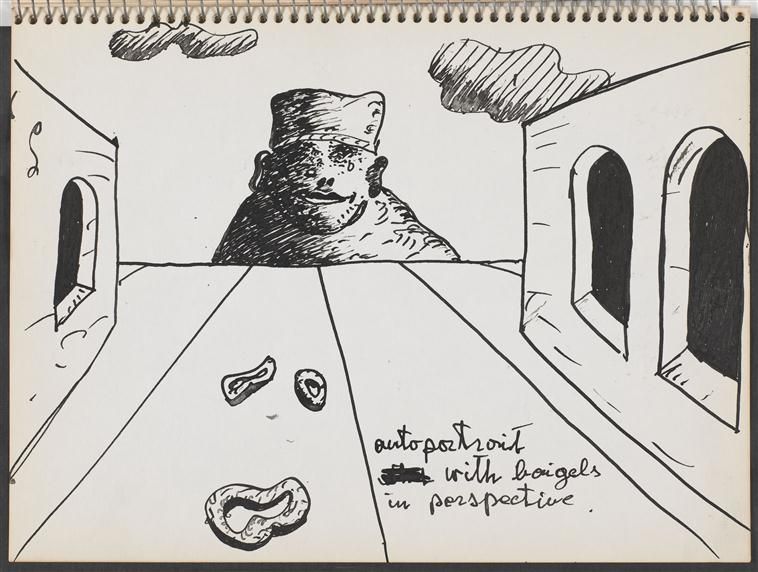 autoportrait
with baigels
in perspective.